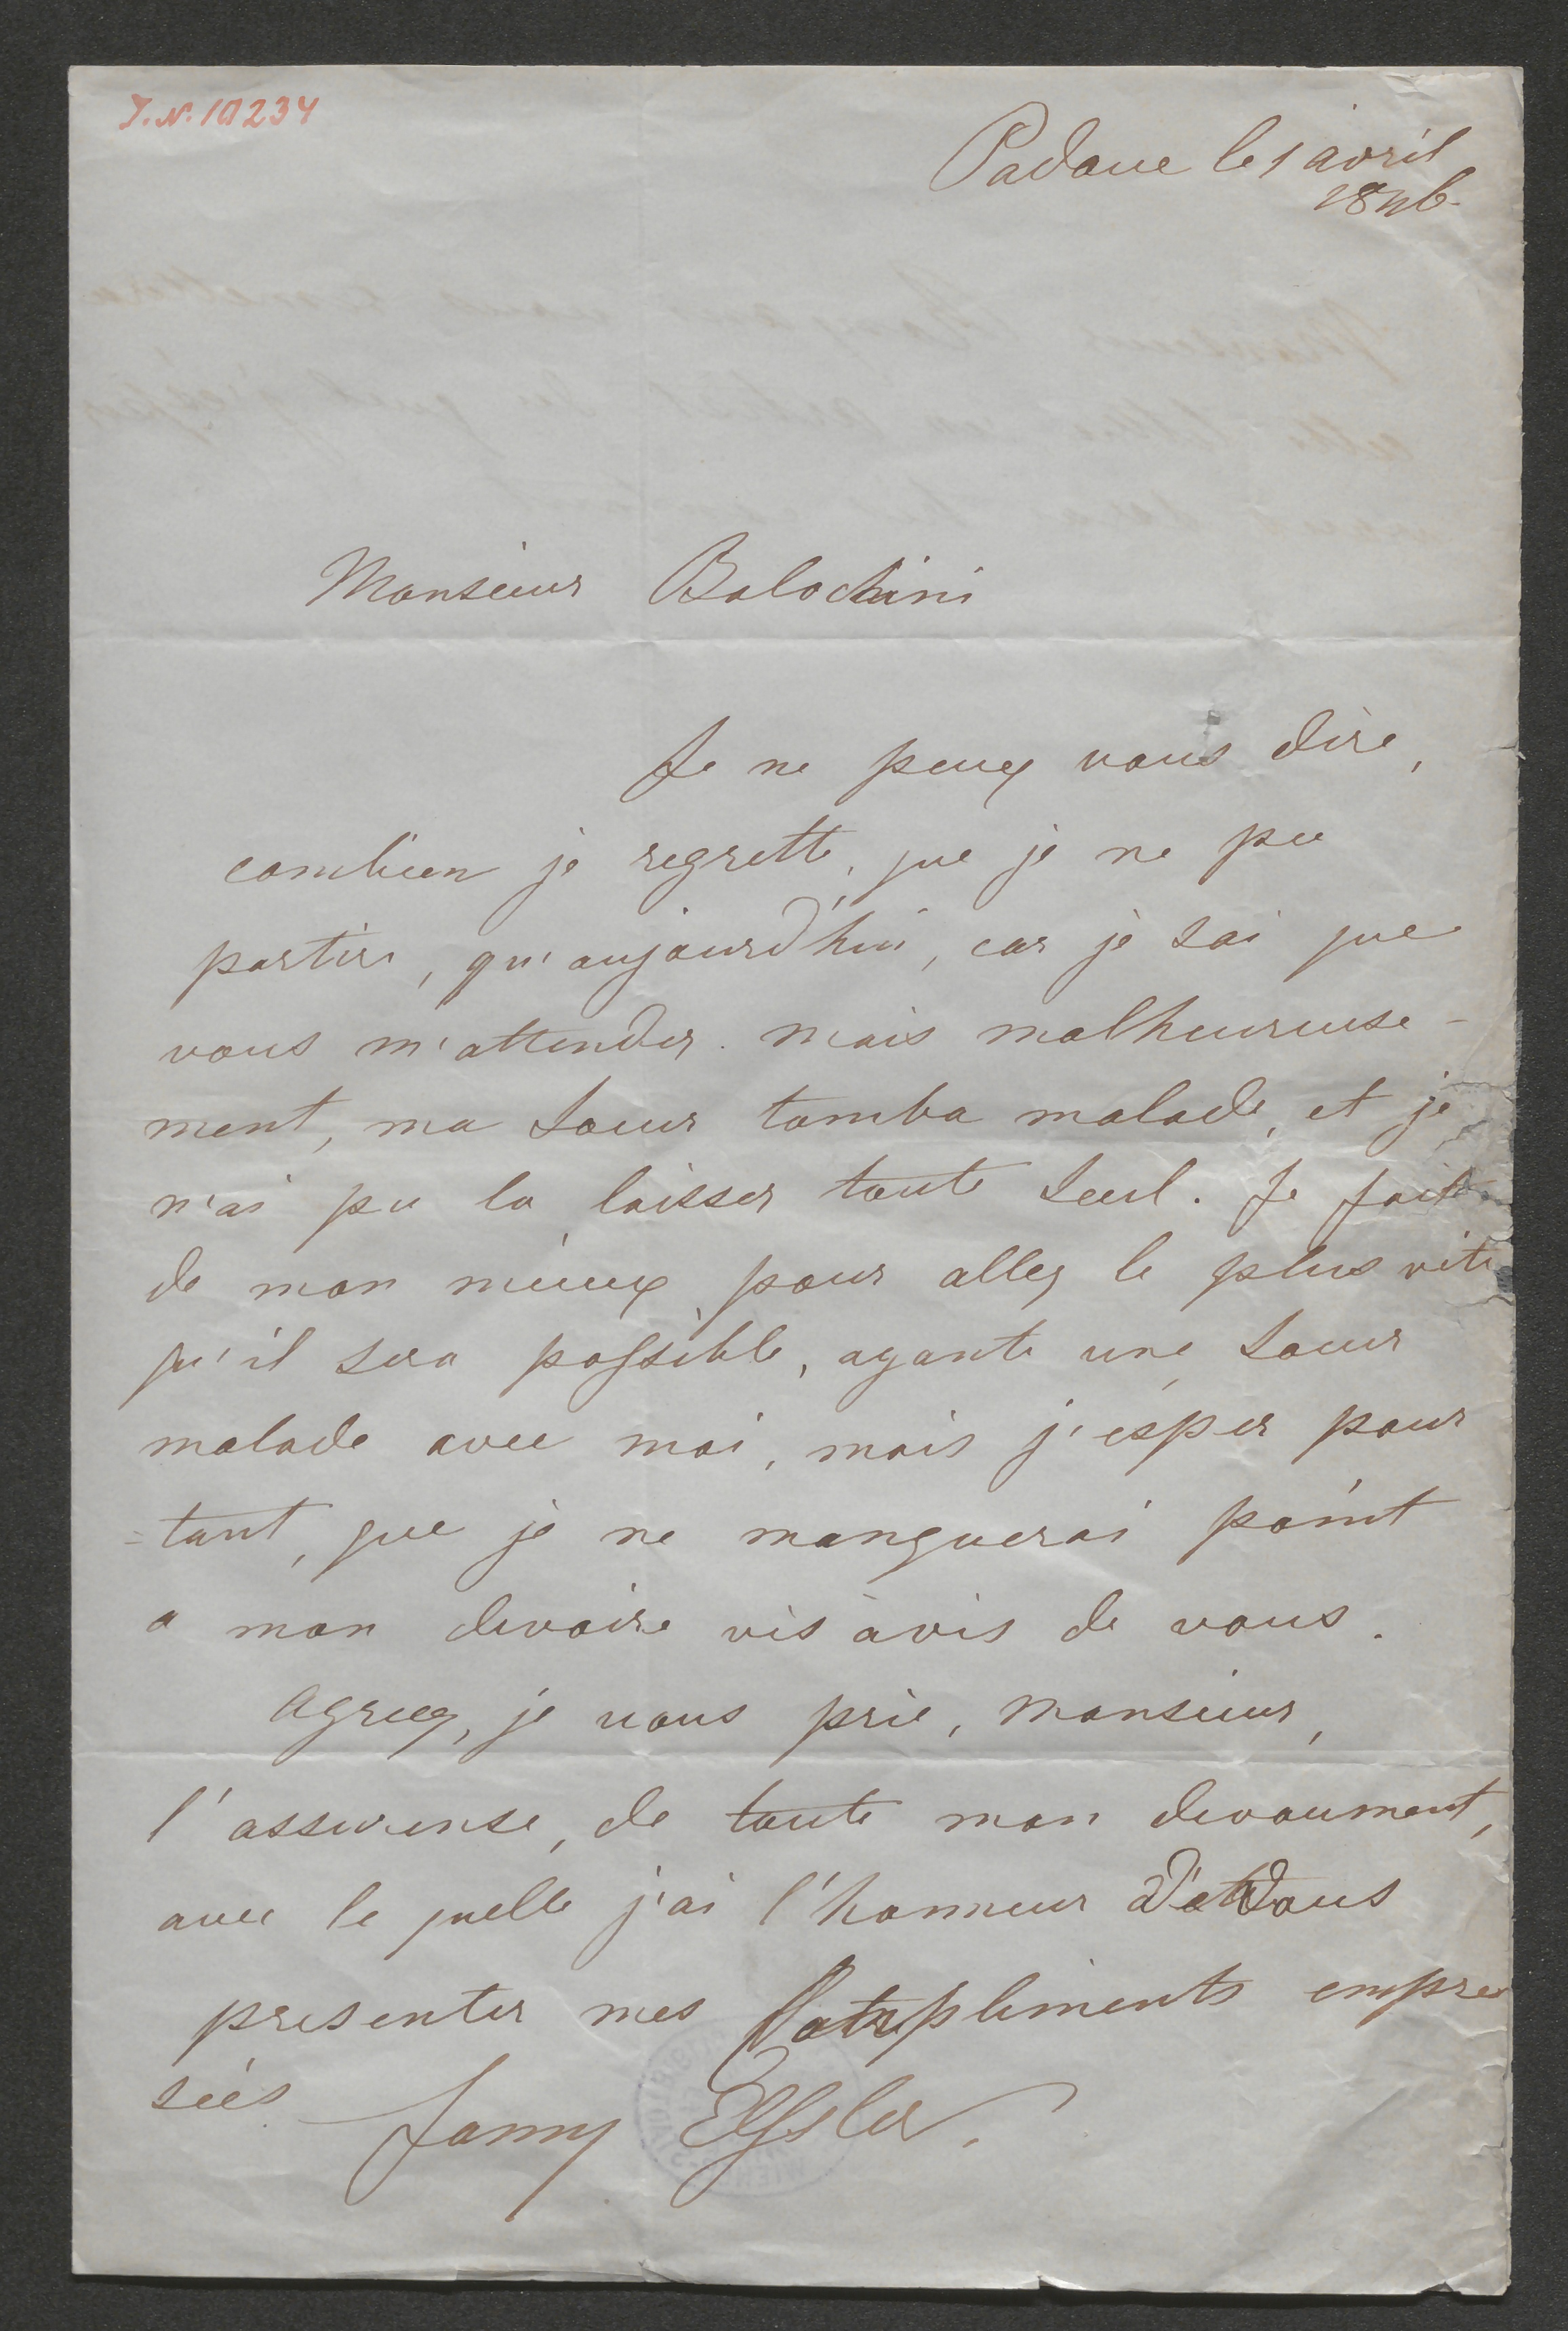 I.N. 10234
Padoue le 1 avril
1846.
Monsieur Balochini
Je ne peux vous dire,
combien je regrette, que je ne pu
partire, qu'aujourd'hui, car je sai que
vous m'attender. mais malheureuse-
ment, ma Soeur tomba malade, et je
n'ai pu la laisser toute Seul. Je fait
de mon mieux pour allez le plus vite
qu'il sera possible, ayante une Soeur
malade avec moi, mais j'esper pour
=tant, que je ne manquerai point
a mon devoire vis à vis de vous.
Agreez, je vous prie, Monsieur,
l'assurense, de toute mon devoument,
avec le quelle j'ai l'honneur Vous
presenter mes Compliments empres
séés. Fanny Elssler.